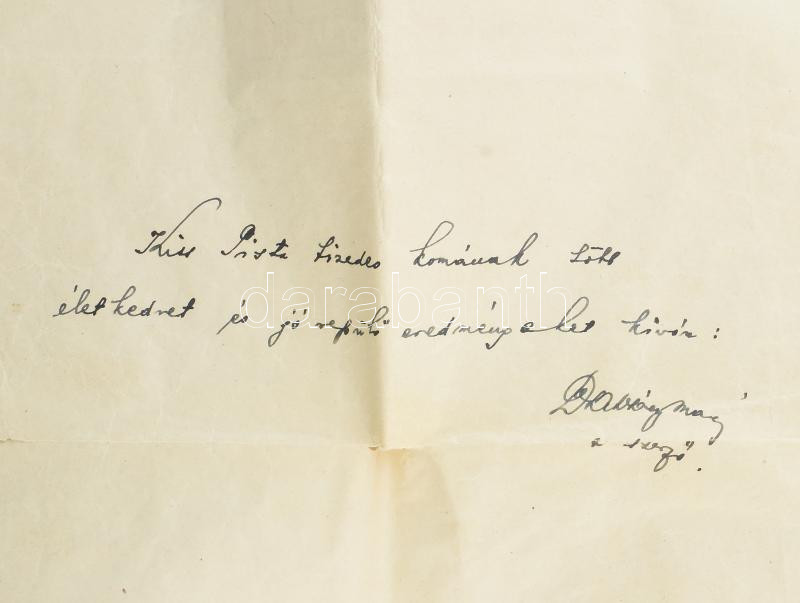 Kiss Pista tizedes komának több
életkedvet és jó repülő eredményeket kíván:
a szerző.
darabanth